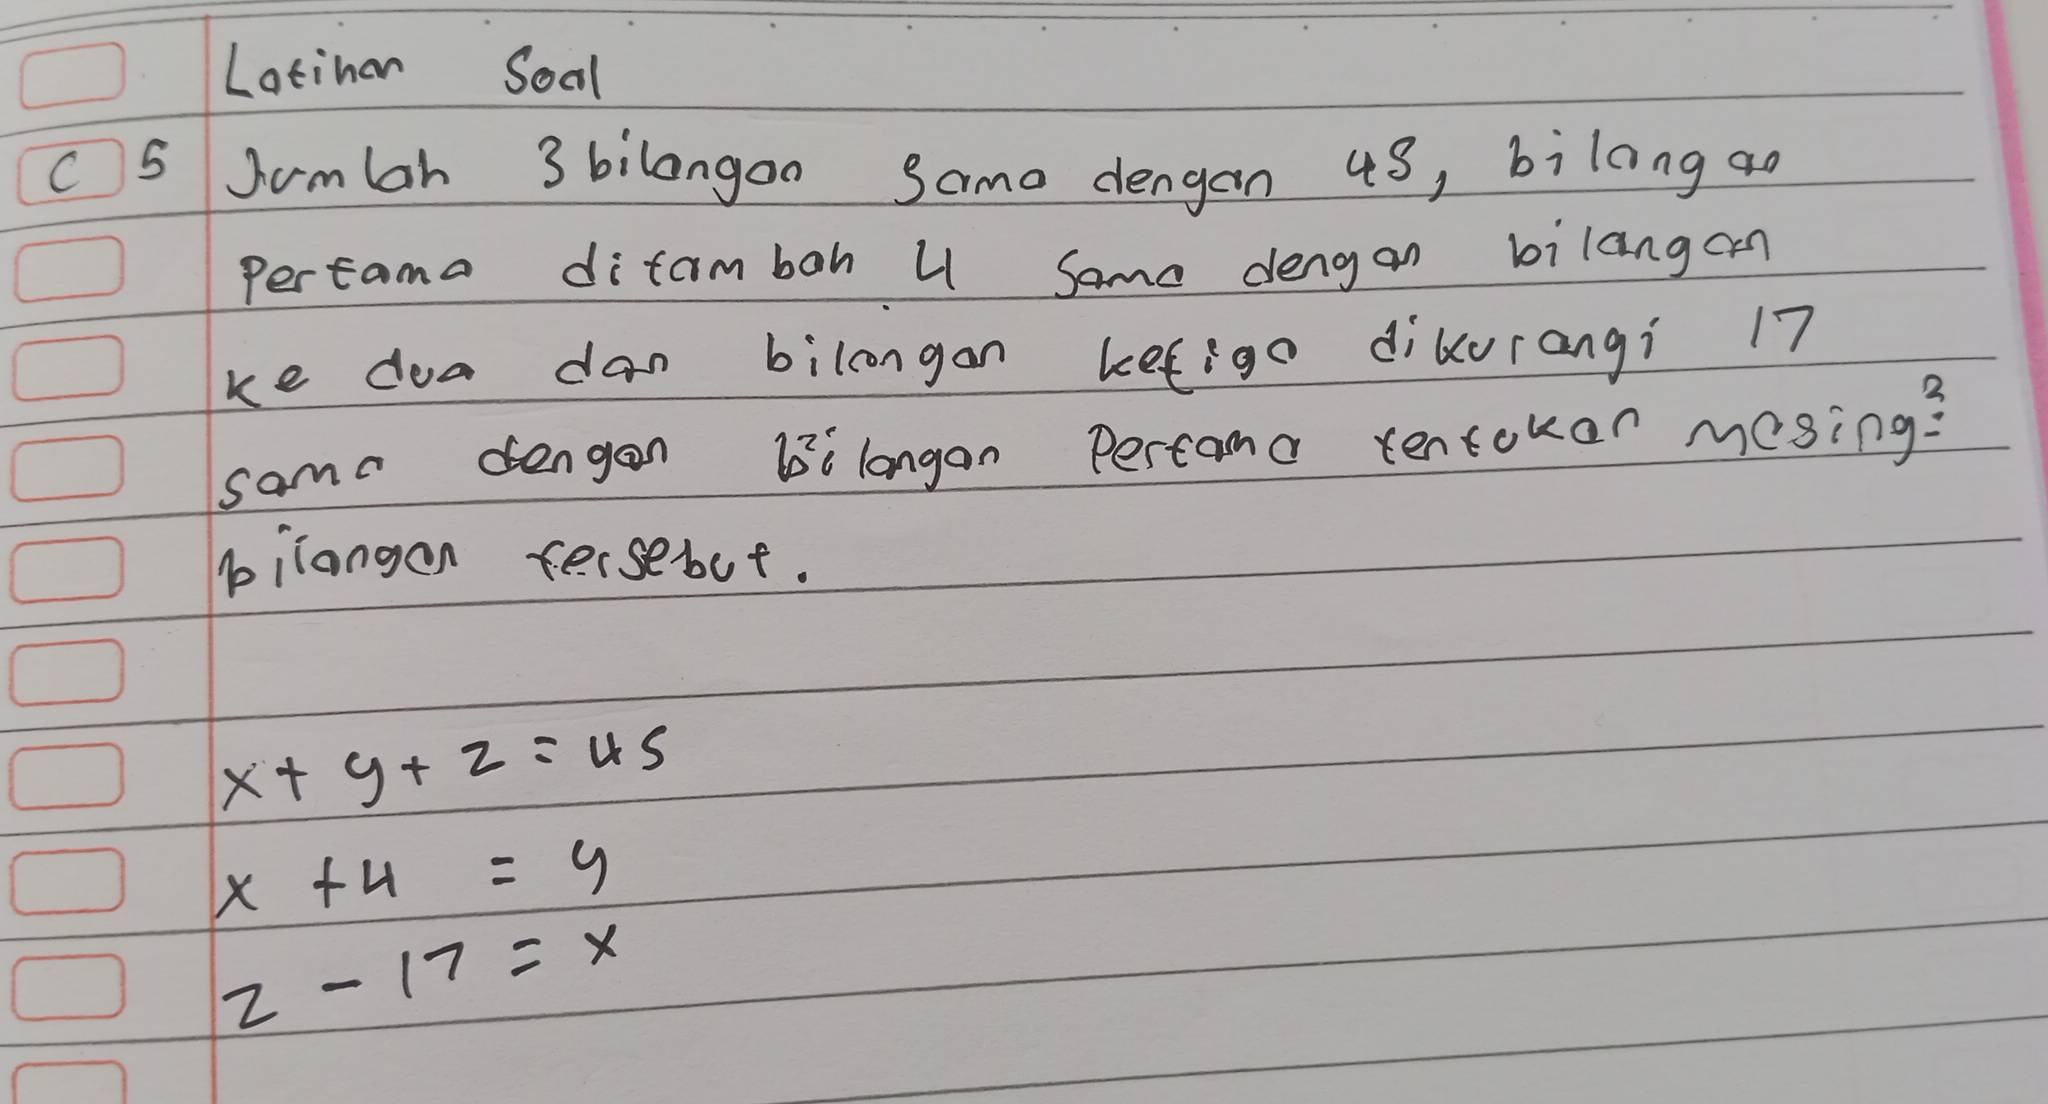 Latihan Soal
C 5 Jumlah 3 bilangan sama dengan 45, bilangan
Pertama ditambah 4 sama dengan bilangan
ke dua dan bilangan ketiga dikurangi 17
sama dengan bilangan Pertama tentukan masing²
bilangan tersebut.
x + y + z = 45
x + 4 = y
z - 17 = x